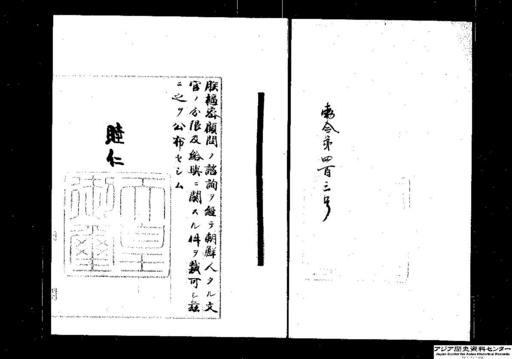 勅令第四百三号
朕枢密顧問ノ諮詢ヲ経テ朝鮮人タル文
官ノ分限及給与ニ関スル件ヲ裁可シ茲
ニ之ヲ公布セシム
睦仁
天皇
御璽
アジア歴史資料センター
Japan Center for Asian Historical Records